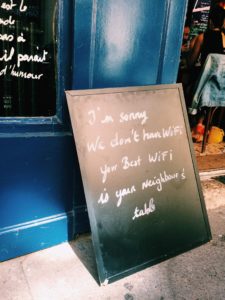 est le
as à
il paraît
d'humour
I'm sorry
We don't have WiFi
your Best WiFi
is your Neighbour's
table